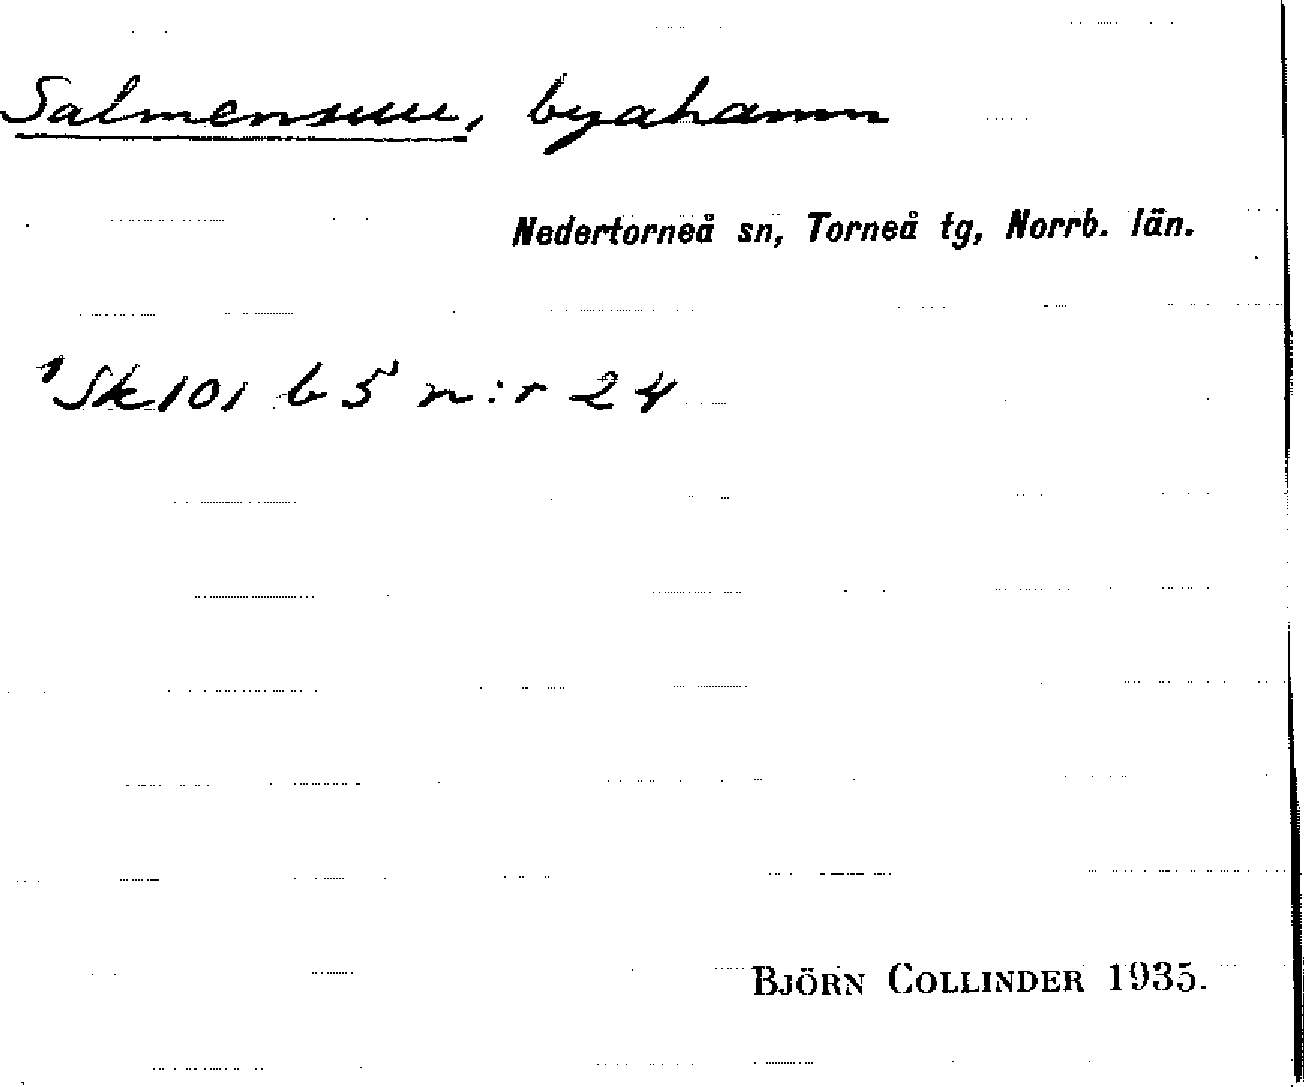 Salmensuu, byahamn
Nedertorneå sn, Torneå tg, Norrb. län.
1 Sk 101 b 5 n:r 24
BJÖRN COLLINDER 1935.